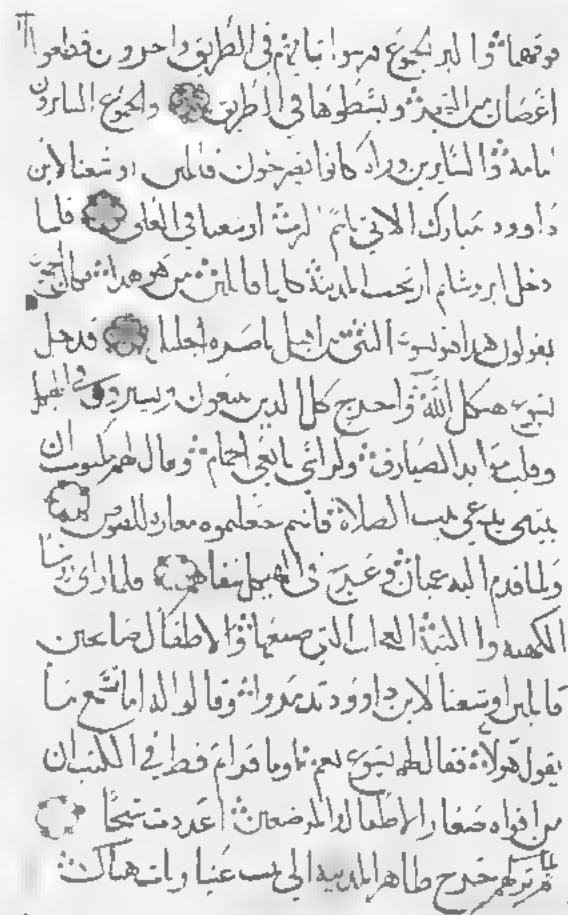 فوقهما والبر الجموع فرسوا ثيابهم في الطريق واخرون قطعوا
اغصان من الشجر وبسطوها في الطريق والجموع السايرون
امامه والسايرين وراه كانوا يصرخون قايلين اوشعنا لابن
داوود مبارك الاتي باسم الرب اوشعنا في العلى فلما
دخل ايروشليم ارتجت المدينة كلها قايلين من هو هذا
يقولون هذا هو يسوع النبي من اهل ناصره الجليل فدخل
يسوع هيكل الله واخرج كل الذين يبيعون ويشترون في الهيكل
وقلب موايد الصيارف وكراسي بايعي الحمام وقال لهم مكتوب ان
بيتي يدعى بيت الصلاة فانتم جعلتموه مغاره للصوص
ولما قدم اليه عميان وعرج في الهيكل شفاهم فلما راى روسا
الكهنه والكتبة العجايب التي صنعها والاطفال صايحين
قايلين اوشعنا لابن داوود تذمروا وقالوا له اما تسمع ما
يقول هولاء فقال لهم يسوع نعم اوما قراتم قط في الكتب ان
من افواه صغار الاطفال والمرضعين اعددت سبحا
ثم تركهم خرج ظاهر المدينه الى بيت عنيا وبات هناك